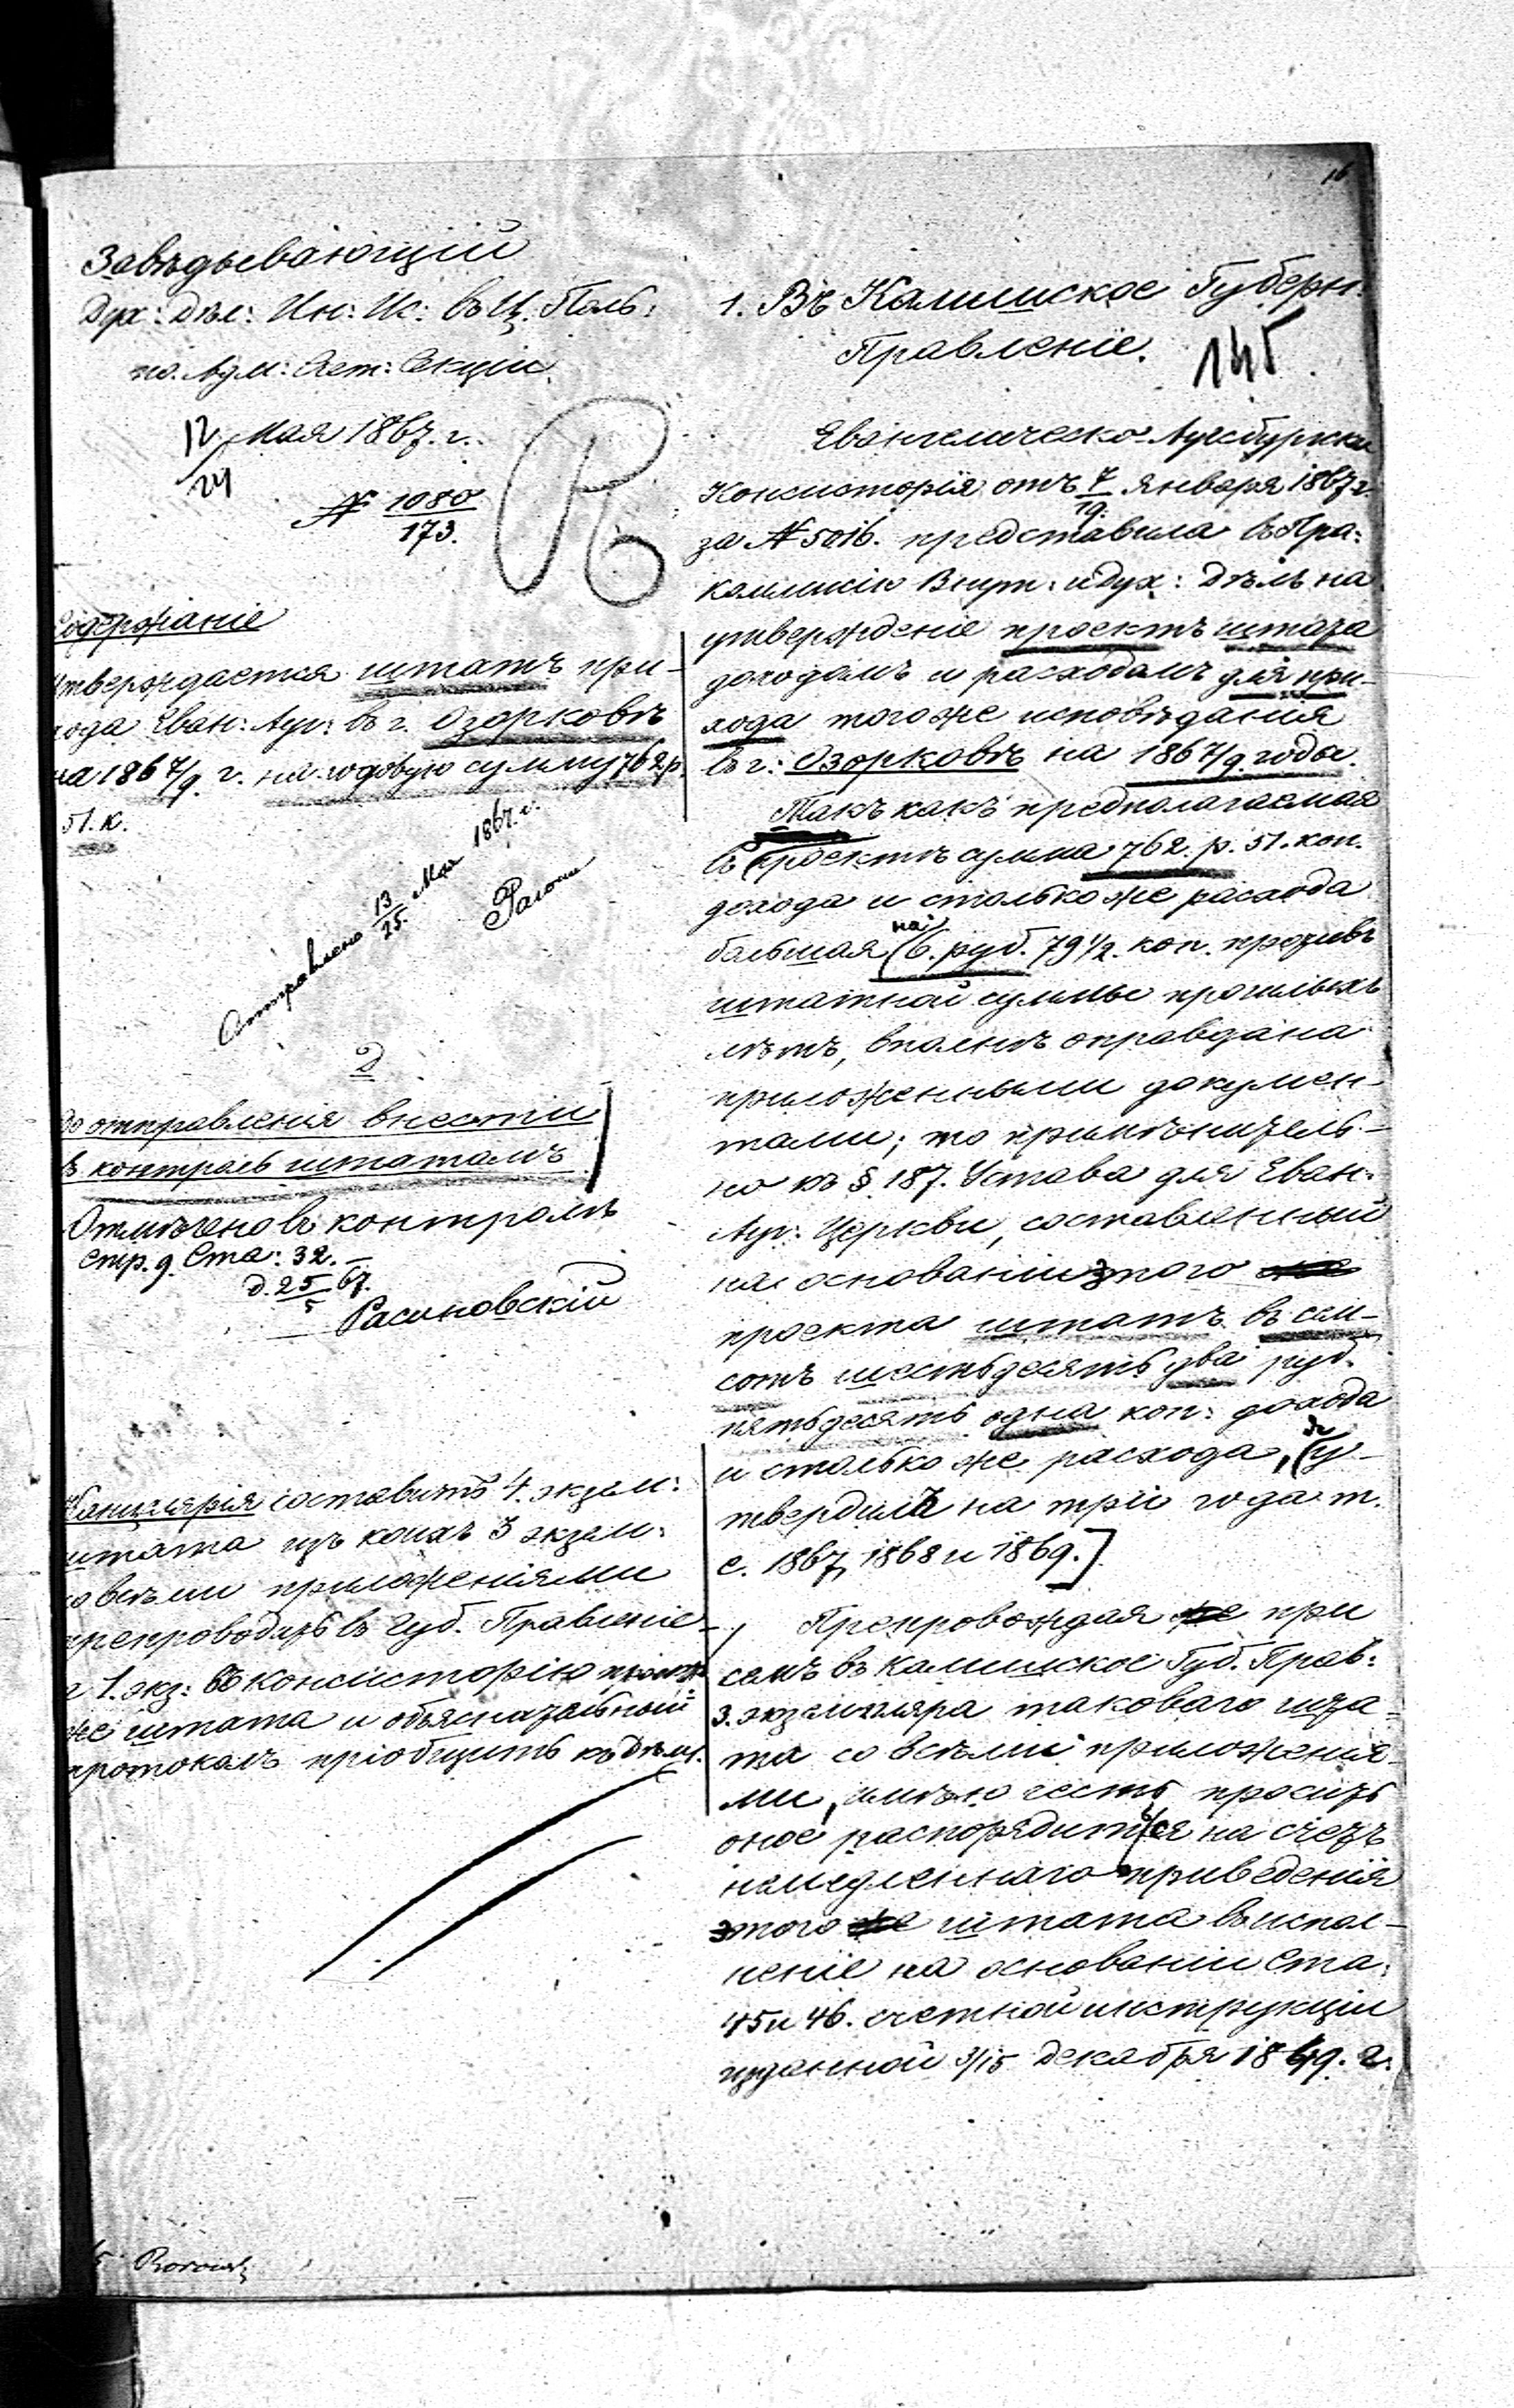 16
Завѣдывающій
Дух: Дѣл: Ин: Ис: въ Ц. Поль:
по Адм: Хет: Секціи.
12/24 Мая 1867. г.
№ 1080/173.
Содержаніе
Утверждается штатъ при-
хода Еван: Ауг: въ г. Озорковѣ
на 1867/9. г. на годовую сумму 762 р.
51. к.
Отправлено 13/25. Мая 1867. г.
2
До отправленія внести
въ контроль штатамъ
Отмѣчено въ контролѣ
стр. 9. Ста: 32. –
д. 25/5 67.
Канцелярія составитъ 4. экзем:
штата изъ коихъ 3 экзем:
со всѣми приложеніями
препроводитъ въ Губ. Правленіе
а 1. экз: въ Консисторію
же штата и объяснительный
протоколъ пріобщить къ дѣлу.
1. Въ Калишское Губерн:
Правленіе.
145
Евангелическо-Аугсбургская
Консисторія отъ 7/19. Января 1867 г.
за № 5016. представила въ Пра:
коммисію Внут: и Дух: Дѣлъ на
утвержденіе проектъ штата
доходамъ и расходамъ для при-
хода того же исповѣданія
въ г: Озорковѣ на 1867/9. годы.
Такъ какъ предполагаемая
въ проектѣ сумма 762. р. 51. коп.
дохода и столько же расхода
большая на 6. руб. 79 1/2. коп. противъ
штатной суммы прошлыхъ
лѣтъ, вполнѣ оправдана
приложенными докумен-
тами; то примѣнитель-
но къ § 187. Устава для Еван:
Ауг: Церкви, составленный
на основаніи этого же
проекта штатъ въ сем-
сотъ шестьдесятъ два руб.
пятьдесятъ одна коп: дохода
и столько же расхода, я у-
твердилъ на три года т.
е. 1867, 1868 и 1869.]
Препровождая же при
семъ въ Калишское Губ. Прав:
3. экземпляра таковаго шта-
та со всѣми приложенія-
ми, имѣю честь просить
оное распорядиться на счетъ
немедленнаго приведенія
этого же штата въ испол-
неніе на основаніи Ста:
45 и 46. счетной инструкціи
изданной 3/15 Декабря 1849. г.